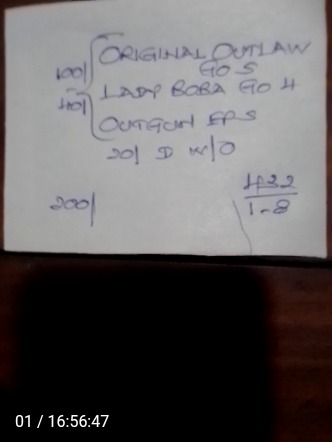 100/ ORIGINAL OUTLAW
GO 5
40/ LADY BOBA GO 4
OUTGUN EPS
20/ D W/O
200/
432
1-8
01 / 16:56:47